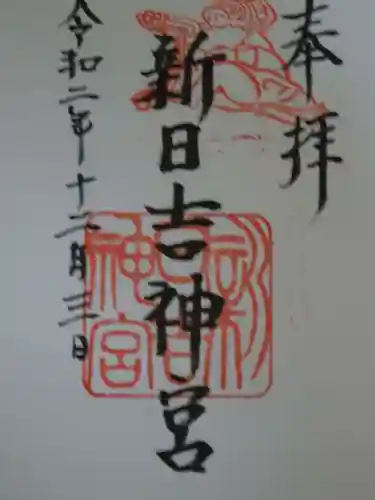 奉拝
新日吉神宮
令和二年十二月三日
新日吉神宮